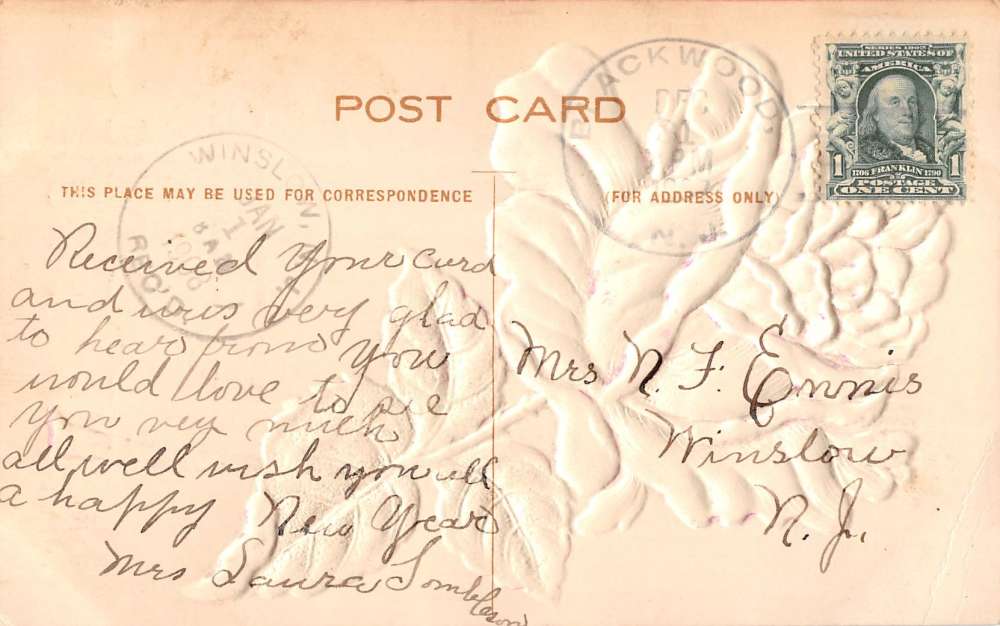 POST CARD
THIS PLACE MAY BE USED FOR CORRESPONDENCE
(FOR ADDRESS ONLY)
WINSLOW,
JAN
1
8 AM
1908
N.J.
REC'D
BLACKWOOD,
DEC
PM
N.J.
SERIES 1902
UNITED STATES OF
AMERICA
1 1
1706 FRANKLIN 1790
POSTAGE
ONE CENT
Received your card
and was very glad
to hear from you
would love to see
you very much
all well wish you all
a happy New Year
Mrs Laura
Mrs N. F. Ennis
Winslow
N. J.